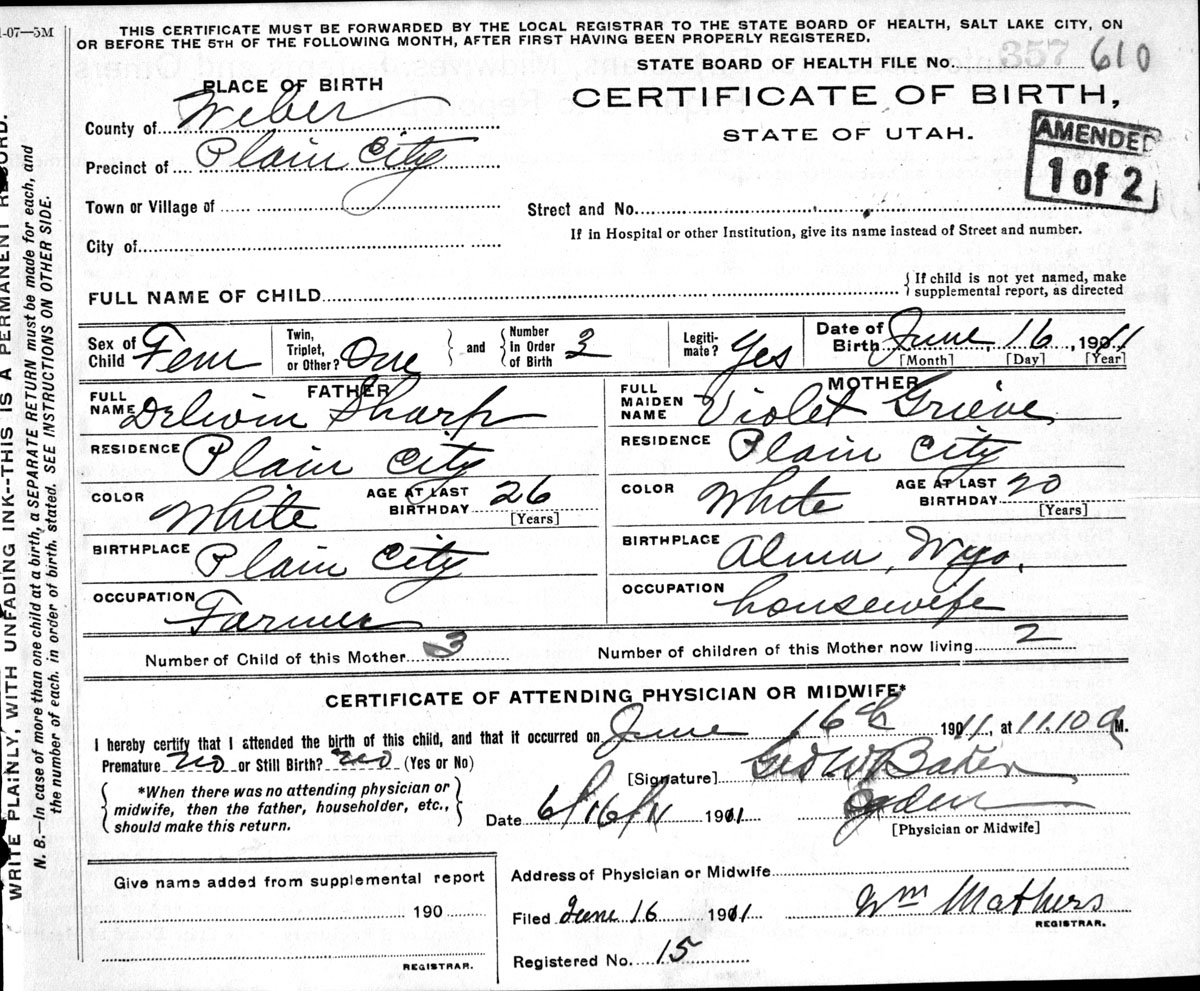 1-07—5M
THIS CERTIFICATE MUST BE FORWARDED BY THE LOCAL REGISTRAR TO THE STATE BOARD OF HEALTH, SALT LAKE CITY, ON
OR BEFORE THE 5TH OF THE FOLLOWING MONTH, AFTER FIRST HAVING BEEN PROPERLY REGISTERED.
STATE BOARD OF HEALTH FILE No. 357 610
PLACE OF BIRTH
CERTIFICATE OF BIRTH,
STATE OF UTAH.
AMENDED
1 of 2
County of Weber
Precinct of Plain City
Town or Village of
Street and No.
City of
If in Hospital or other Institution, give its name instead of Street and number.
FULL NAME OF CHILD
If child is not yet named, make
supplemental report, as directed
Sex of Child Fem
Twin, Triplet, or Other? One
and
Number in Order of Birth 3
Legiti-mate? Yes
Date of Birth June 16, 1911
[Month] [Day] [Year]
FATHER
FULL NAME Delwin Sharp
RESIDENCE Plain City
COLOR White
AGE AT LAST BIRTHDAY 26
[Years]
BIRTHPLACE Plain City
OCCUPATION Farmer
MOTHER
FULL MAIDEN NAME Violet Grieve
RESIDENCE Plain City
COLOR White
AGE AT LAST BIRTHDAY 20
[Years]
BIRTHPLACE Alma, Wyo,
OCCUPATION housewife
Number of Child of this Mother 3
Number of children of this Mother now living 2
CERTIFICATE OF ATTENDING PHYSICIAN OR MIDWIFE*
I hereby certify that I attended the birth of this child, and that it occurred on June 16th 1911, at 11.10 a M.
Premature no or Still Birth? no (Yes or No)
[Signature] Geo W Baker
*When there was no attending physician or
midwife, then the father, householder, etc.,
should make this return.
Date 6/16/11 1911
Ogden
[Physician or Midwife]
Give name added from supplemental report
190
REGISTRAR.
Address of Physician or Midwife
Filed June 16 1911
Wm Mathers
REGISTRAR.
Registered No. 15
WRITE PLAINLY, WITH UNFADING INK--THIS IS A PERMANENT RECORD.
N. B.—In case of more than one child at a birth, a SEPARATE RETURN must be made for each, and
the number of each, in order of birth, stated. SEE INSTRUCTIONS ON OTHER SIDE.